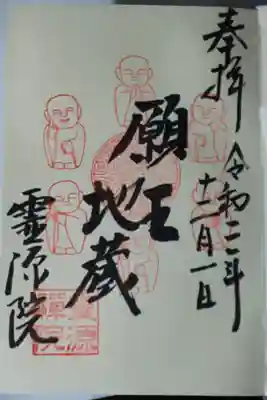 奉拝
令和二年
十一月一日
願王
地蔵
霊源院